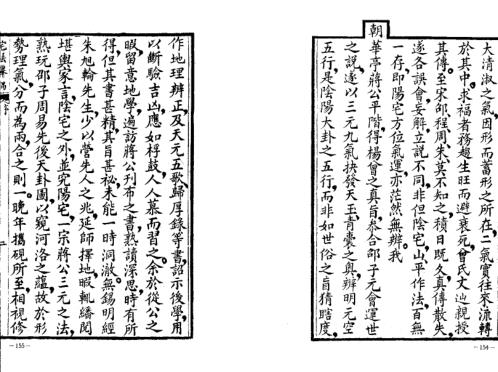 大清淑之氣因形而蓄形之所在二氣實往來流轉
於其中求福者務趨生旺而避衰死曾氏文辿親授
其傳至宋邵程周朱莫不知之積日既久真傳散失
遂各誤會妄解立說不同非但陰宅山平作法百無
一存即陽宅方位氣運亦茫然無辨我
朝
華亭蔣公平階得楊曾之真旨參合邵子元會運世
之說遂以三元九氣抉發天玉青囊之奧辨明元空
五行是陰陽大卦之五行而非如世俗之盲猜瞎度
－154－
作地理辨正及天元五歌歸厚錄等書詔示後學用
以斷驗吉凶應如桴鼓人人慕而習之余於從公之
暇留意地學遍訪蔣公刊布之書熟讀深思時有所
得但其書甚精其旨甚祕未能一時洞澈無錫明經
朱旭輪先生少以營先人之兆延師擇地暇輒繙閱
堪輿家言陰宅之外並究陽宅一宗蔣公三元之法
熟玩邵子周易先後天卦圖以窺河洛之蘊故於形
勢理氣分而為兩合之則一晚年攜硯所至相視修
－155－